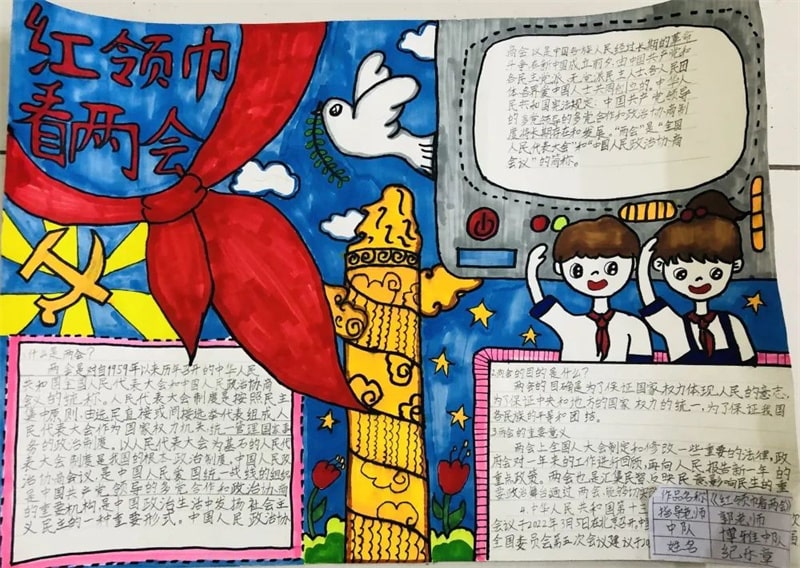 红领巾
看两会
商会议是中国各族人民经过长期的革命
斗争在新中国成立前夕,由中国共产党和
各民主党派,无党派民主人士,各人民团
体各界爱中国人士共同创立的。中华人
民共和国宪法规定:中国共产党领导
的多党合作和政治协商制
度将长期存在和发展。“两会”是“全国
人民代表大会”和“中国人民政治协商
会议”的简称。
什么是两会?
两会是对自1959年以来历年召开的中华人民
共和国全国人民代表大会和中国人民政治协商
会议的统称。人民代表大会制度是按照民主
集中原则,由选民直接或间接选举代表组成人
民代表大会作为国家权力机关统一管理国家事
务的政治制度。以人民代表大会为基石的人民代
表大会制度是我国的根本政治制度。中国人民政
治协商会议,是中国人民爱国统一战线的组织
是中国共产党领导的多党合作和政治协商
的重要机构,是中国政治生活中发扬社会主
义民主的一种重要形式。中国人民政治协
2.两会的目的是什么?
两会的目的是为了保证国家权力体现人民的意志,
为了保证中央和地方的国家权力的统一,为了保证我国
各民族的平等和团结。
3.两会的重要意义
两会上全国人大会制定和修改一些重要的法律,政
府会对一年来的工作进行回顾,再向人民报告新一年的
重大政策。两会也是汇集民智反映民意影响民生的重
要政治舞台通过两会
4.中华人民共和国第十
会议于2022年3月5日在北京召开,中
全国委员会第五次会议建议于2
作品名称 《红领巾看两会》
指导老师 郭老师
中队 博雅中队
姓名